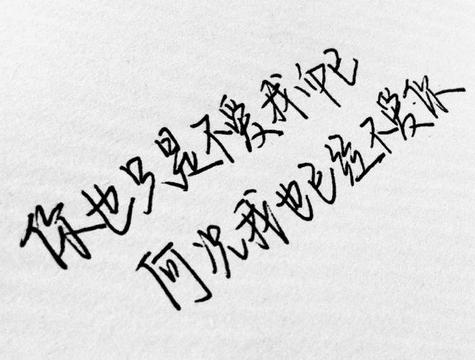 你也只是不爱我吧
何况我也已经不爱你